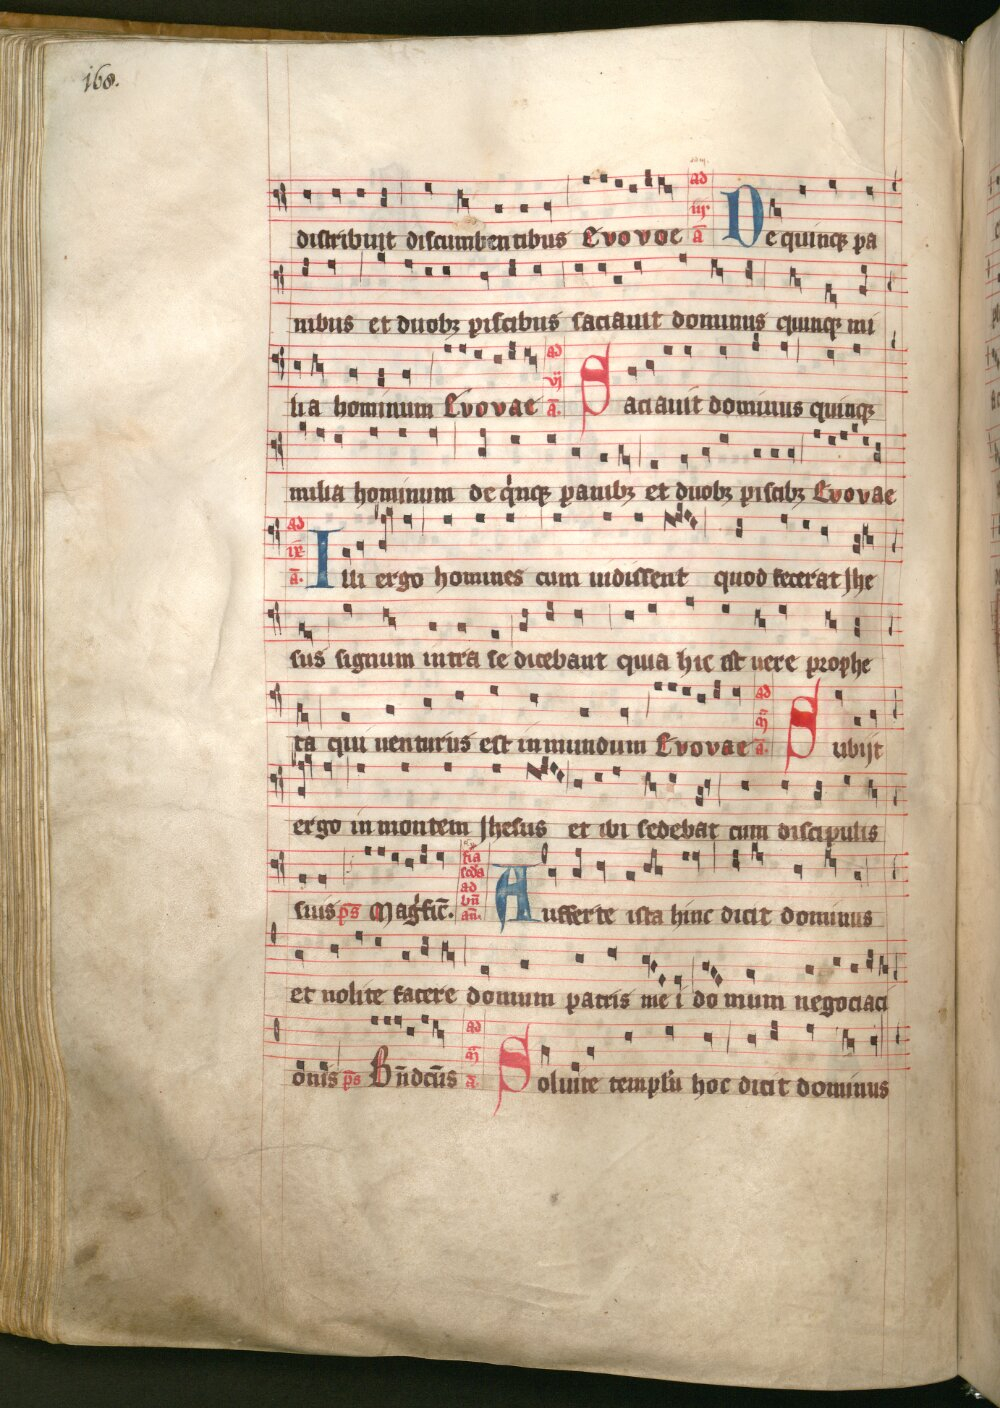 168.
distribuit discumbentibus Evovae ad iij. a De quinqꝫ pa
nibus et duobꝫ piscibus saciauit dominus quinqꝫ mi
lia hominum Evovae ad vj a. Saciauit dominus quinqꝫ
milia hominum de qͥnqꝫ panibꝫ et duobꝫ piscibꝫ Evovae
ad ix. a. Illi ergo homines cum uidissent quod fecerat Jhe
sus signum intra se dicebant quia hic est uere prophe
ta qui uenturus est in mundum Evovae ad m̄ a. Subijt
ergo in montem Jhesus et ibi sedebat cum discipulis
suis p̄s Magͥfic̄. fīa scd̄a ad bn̄ an̄. Aufferte ista hinc dicit dominus
et nolite facere domum patris me i do mum negociaci
onis p̄s Bn̄dcūs ad m̄ a. Soluite templū hoc dicit dominus